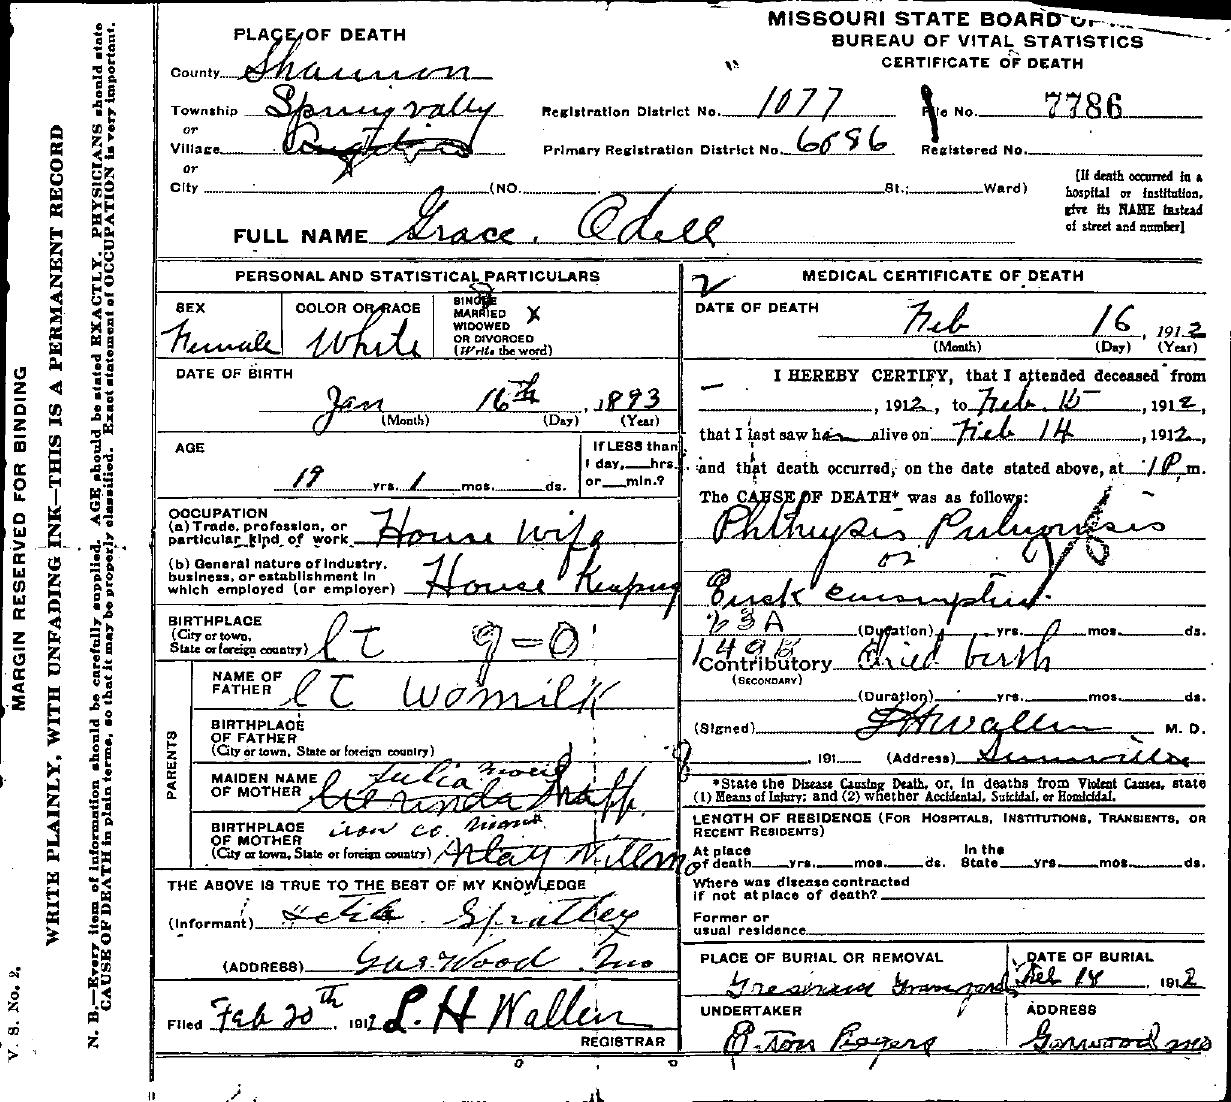 MISSOURI STATE BOARD OF
BUREAU OF VITAL STATISTICS
CERTIFICATE OF DEATH
PLACE OF DEATH
County Shannon
Township Springvally
or
Village
or
City (NO. St.; Ward)
Registration District No. 1077
File No. 7786
Primary Registration District No. 6086
Registered No.
[If death occurred in a
hospital or institution,
give its NAME instead
of street and number]
FULL NAME Grace. Odell
PERSONAL AND STATISTICAL PARTICULARS
SEX
Female
COLOR OR RACE
White
SINGLE
MARRIED X
WIDOWED
OR DIVORCED
(Write the word)
DATE OF BIRTH
Jan 16th, 1893
(Month) (Day) (Year)
AGE
19 yrs. 1 mos. ds.
If LESS than
1 day, hrs.
or min.?
OCCUPATION
(a) Trade, profession, or
particular kind of work House wife
(b) General nature of industry,
business, or establishment in
which employed (or employer) House Keaping
BIRTHPLACE
(City or town,
State or foreign country)
PARENTS
NAME OF
FATHER Womilk
BIRTHPLACE
OF FATHER
(City or town, State or foreign country)
MAIDEN NAME
OF MOTHER Julia
BIRTHPLACE
OF MOTHER iron co.
(City or town, State or foreign country)
THE ABOVE IS TRUE TO THE BEST OF MY KNOWLEDGE
(Informant) Spratley
(ADDRESS) Garwood Mo
Filed Feb 20th, 1912 L. H Wallen
REGISTRAR
MEDICAL CERTIFICATE OF DEATH
2
DATE OF DEATH
Feb 16, 1912
(Month) (Day) (Year)
I HEREBY CERTIFY, that I attended deceased from
, 1912, to Feb. 15, 1912,
that I last saw her alive on Feb 14, 1912,
and that death occurred, on the date stated above, at 1 P m.
The CAUSE OF DEATH* was as follows:
Phthysis
or
consumption.
(Duration) yrs. mos. ds.
Contributory Child birth
(SECONDARY)
(Duration) yrs. mos. ds.
(Signed) Wallen M. D.
, 191 (Address)
*State the Disease Causing Death, or, in deaths from Violent Causes, state
(1) Means of Injury; and (2) whether Accidental, Suicidal, or Homicidal.
LENGTH OF RESIDENCE (FOR HOSPITALS, INSTITUTIONS, TRANSIENTS, OR
RECENT RESIDENTS)
At place
of death yrs. mos. ds.
In the
State yrs. mos. ds.
Where was disease contracted
if not at place of death?
Former or
usual residence
PLACE OF BURIAL OR REMOVAL
DATE OF BURIAL
Feb 18 1912
UNDERTAKER
Rogers
ADDRESS
Garwood Mo
MARGIN RESERVED FOR BINDING
WRITE PLAINLY, WITH UNFADING INK—THIS IS A PERMANENT RECORD
N. B.—Every item of information should be carefully supplied. AGE should be stated EXACTLY. PHYSICIANS should state
CAUSE OF DEATH in plain terms, so that it may be properly classified. Exact statement of OCCUPATION is very important.
V. S. No. 2.